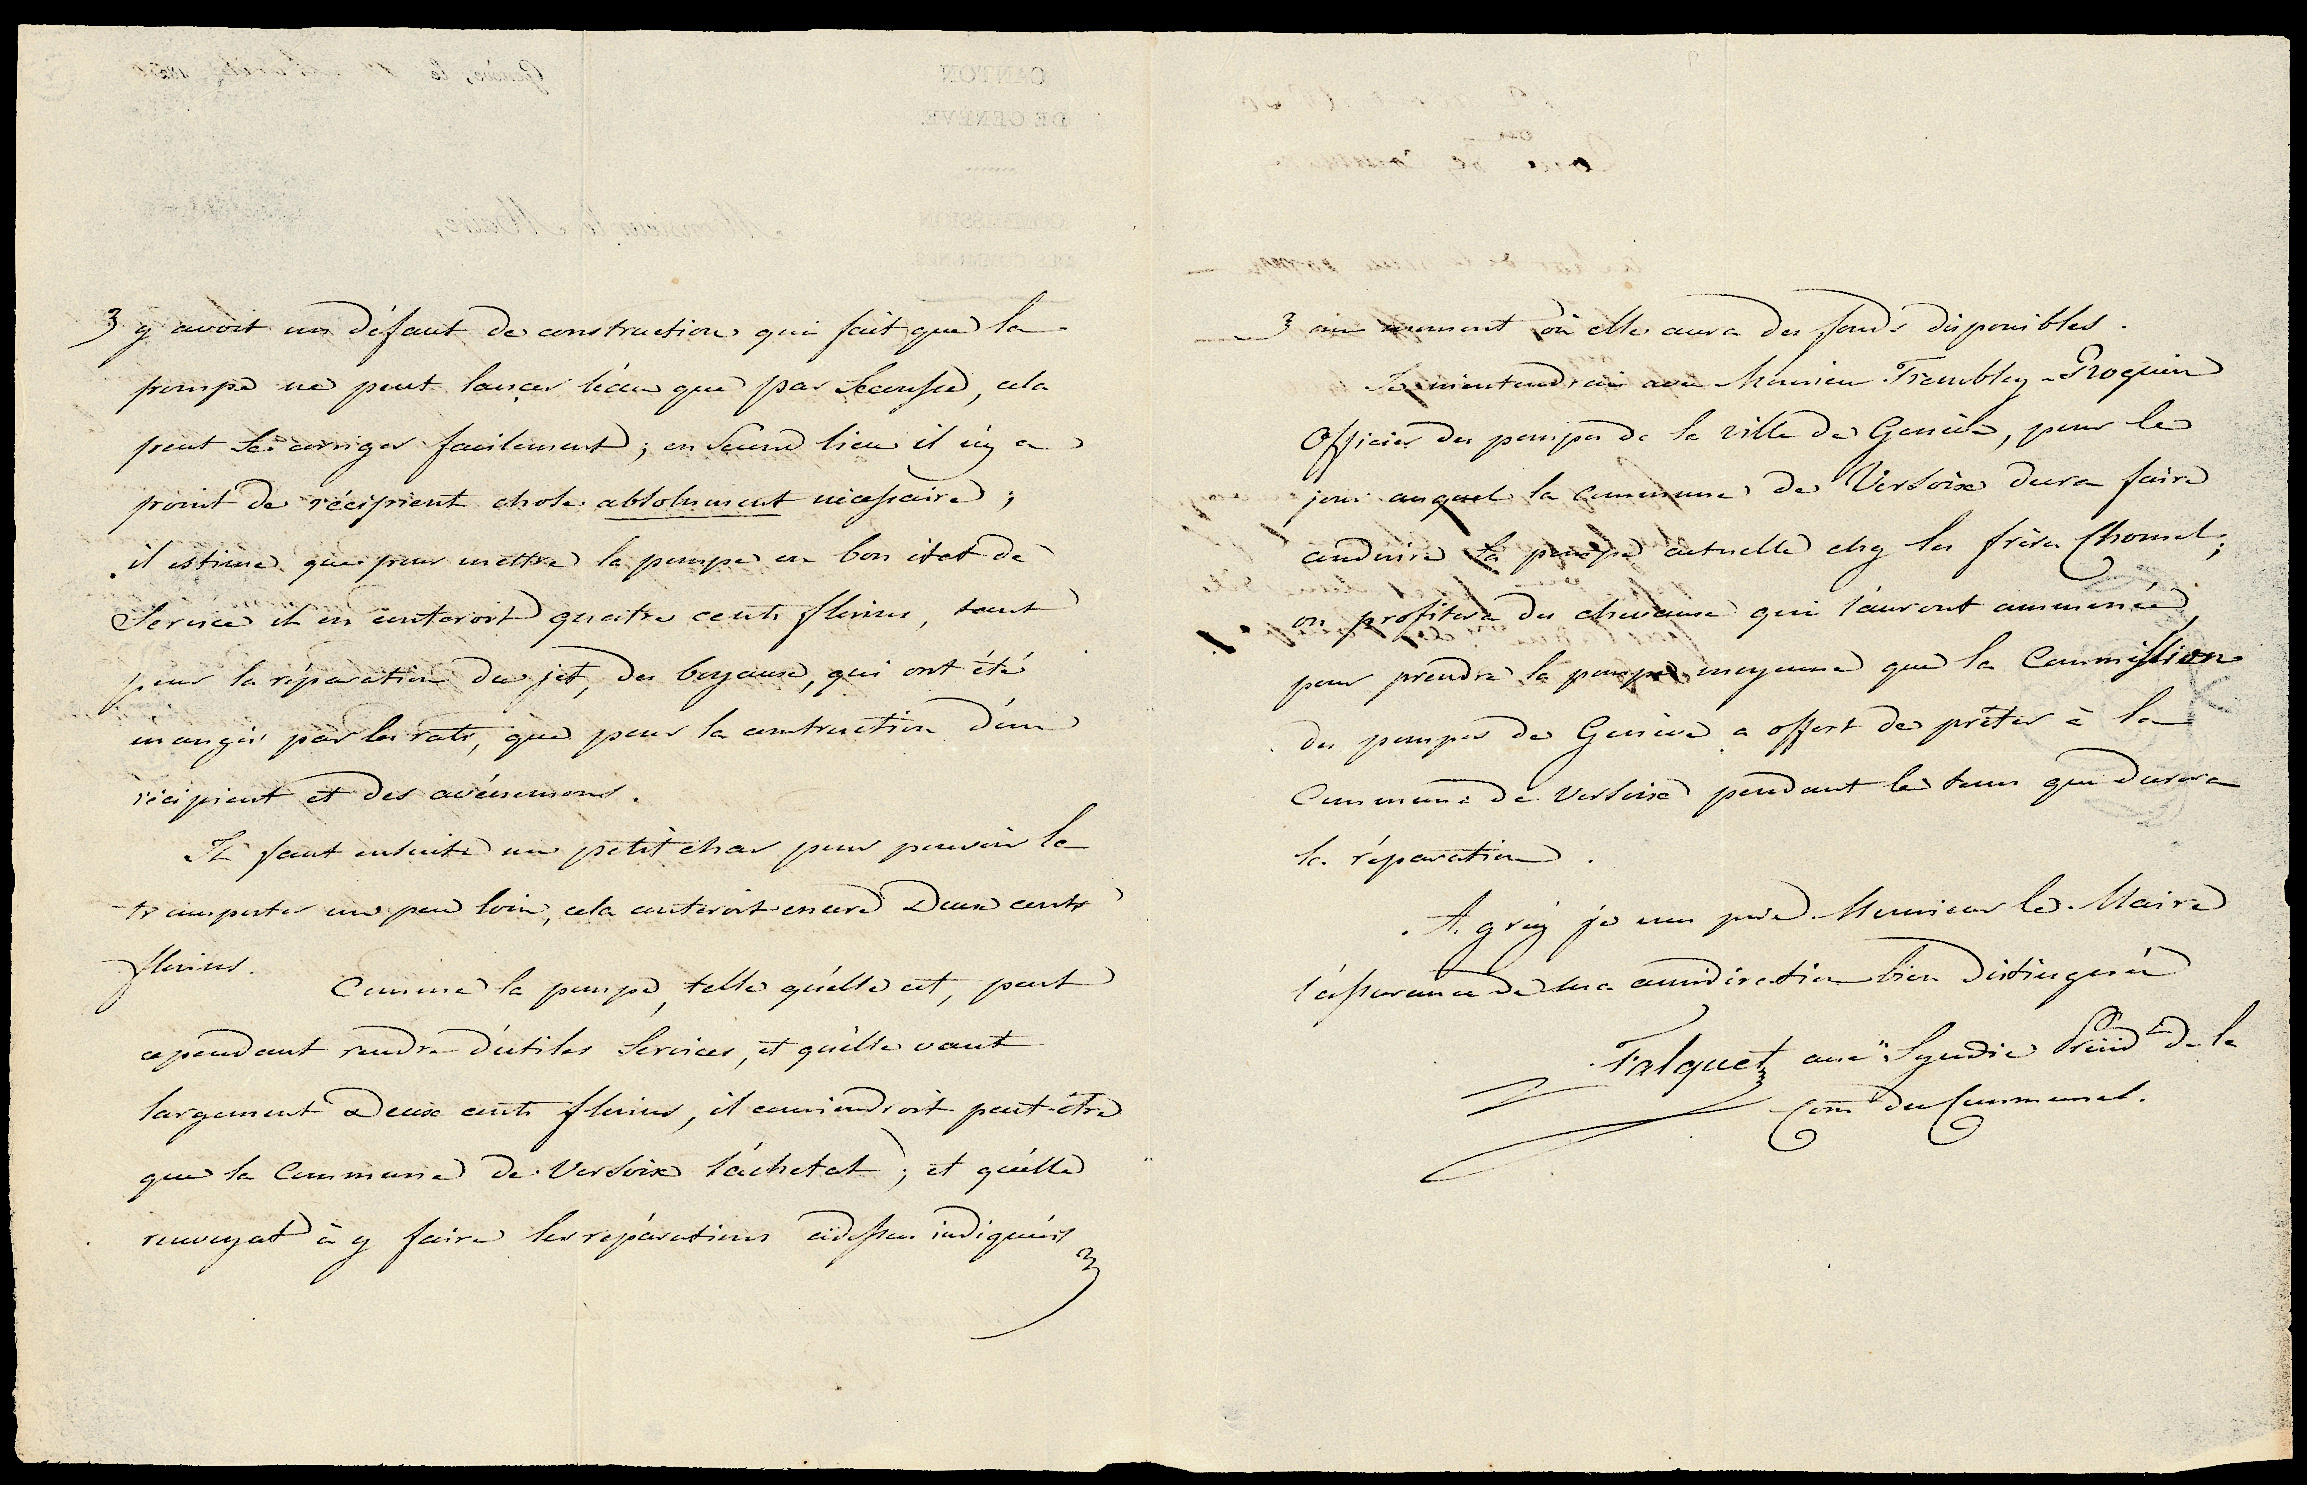 y avoit un défaut de construction qui fait que la
pompe ne peut lancer l'éau que par Secousse, cela
peut se corriger facilement ; en Second lieu il n'y a
point de récipient chose absolument nécessaire ;
il estime que pour mettre la pompe en bon état de
Service il en couteroit quatre cents florins, tant
pour la réparation du jet, des boyaux, qui ont été
mangés par les rats, que pour la construction d'un
récipient et des
Il faut ensuite un petit char pour pouvoir la
transporter un peu loin, cela couteroit encore Deux cents
florins. Comme la pompe, telle qu'elle est, peut
cependant rendre d'utiles Services, et qu'elle vaut
largement Deux cents florins, il conviendroit peut être
que la Commune de Versoix l'achetat ; et qu'elle
renvoyat à y faire les réparations cidessus indiquées
au moment où elle aura des fonds disponibles.
Je m'entendrai avec Monsieur Trembley-
Officier des pompes de la ville de Genève, pour le
jour auquel la Commune de Versoix devra faire
conduire la pompe actuelle chez les frères Chomel ;
on profitera des chevaux qui l'auront ammenée,
pour prendre la pompe moyenne que la Commission
des pompes de Genève a offert de prêter à la
Commune de Versoix pendant le tems que durera
la réparation.
Agréez je vous prie Monsieur le Maire
l'assurance de ma considération bien distinguée
Falquet anc.n Syndic Présid.t de la
Com.n des Communes.
CANTON
DE GENÈVE.
COMMISSION
DES COMMUNES.
Genève, le
Monsieur le Maire,